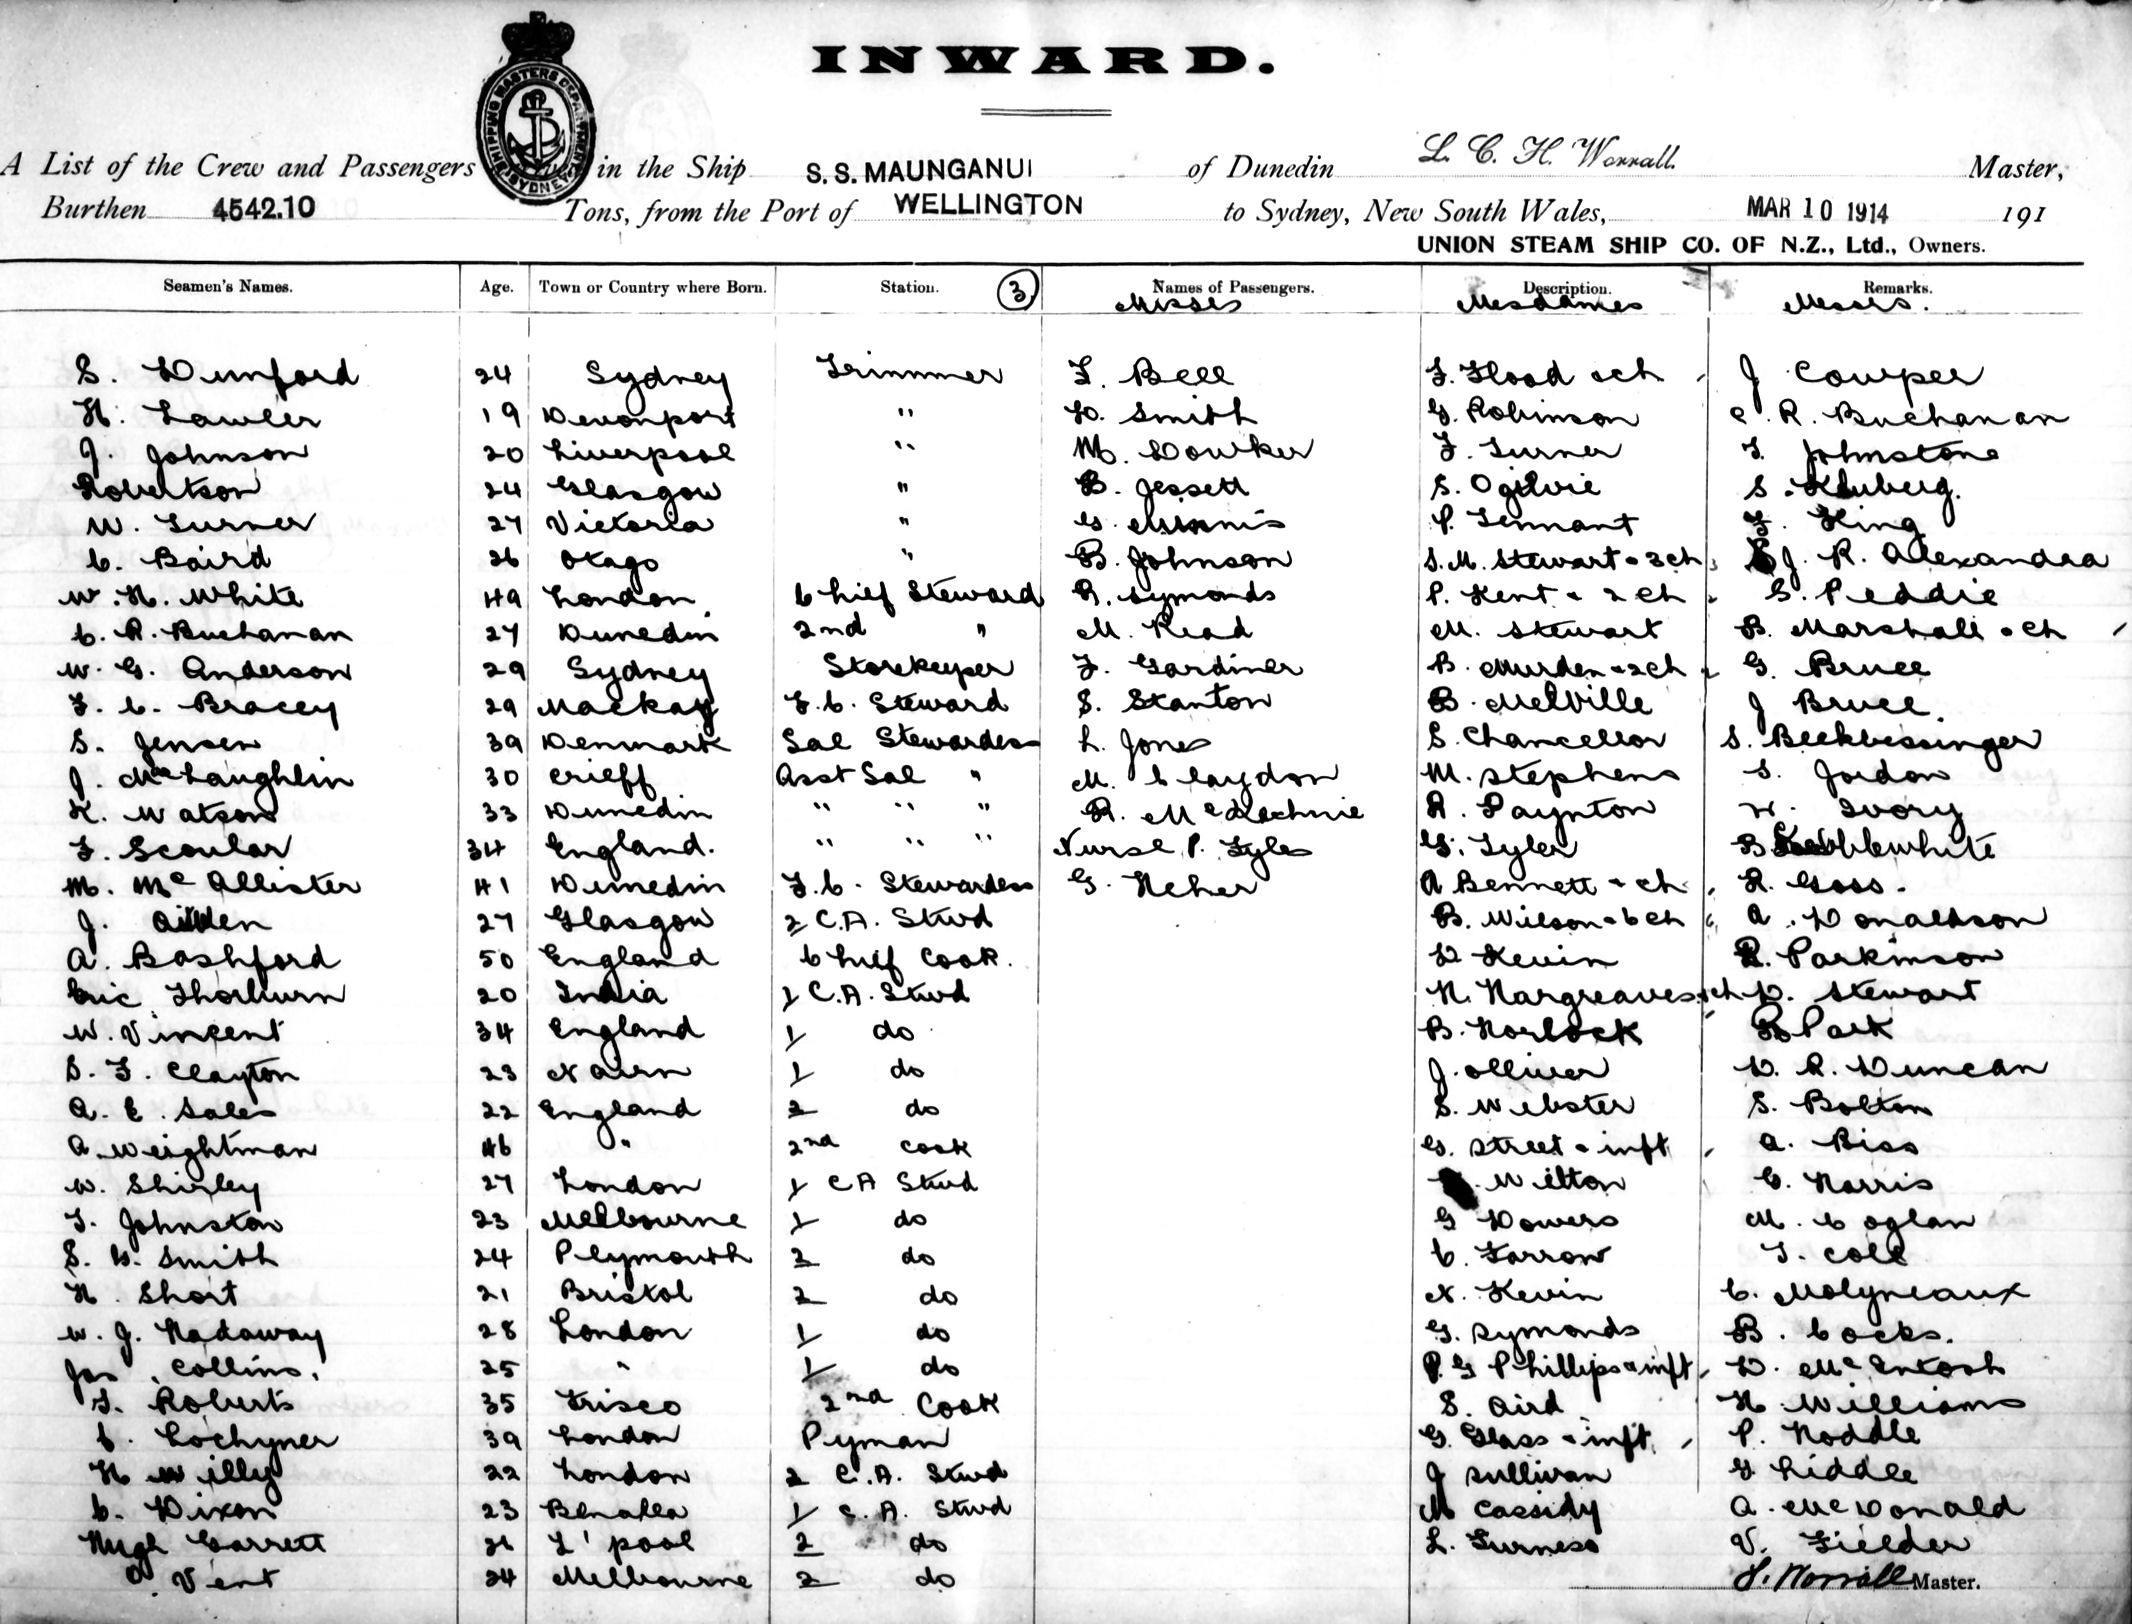 INWARD.
SHIPPING MASTERS DEPARTMENT SYDNEY
A List of the Crew and Passengers in the Ship S.S. MAUNGANUI of Dunedin L. C. H. Worrall. Master,
Burthen 4542.10 Tons, from the Port of WELLINGTON to Sydney, New South Wales, MAR 10 1914 191
UNION STEAM SHIP CO. OF N.Z., Ltd., Owners.
Seamen's Names. Age. Town or Country where Born. Station. 3 Names of Passengers. Description. Remarks.
Misses Mesdames Messrs.
S. Dunford 24 Sydney Trimmer F. Bell F. Flood & ch J Cowper
H. Lawler 19 Devonport " D. Smith G. Robinson C. R. Buchanan
J. Johnson 20 Liverpool " M. Dowker F. Turner T. Johnstone
Robertson 24 Glasgow " B. Jessett S. Ogilvie S.
W. Turner 27 Victoria " G. P. Tennant F. King
C. Baird 26 Otago " B. Johnson S. M. Stewart & 3 ch J. R. Alexandra
W. H. White 49 London Chief Steward R. Symonds P. Kent & 2 ch S. Peddie
C. R. Buchanan 27 Dunedin 2nd " M. Read M. Stewart B. Marshall & ch
W. G. Anderson 29 Sydney Storekeeper F. Gardiner B. Murden & 2 ch G. Bruce
F. C. Bracey 29 Mackay F. C. Steward S. Stanton B. Melville J Bruce.
S. Jensen 39 Denmark Sal Stewardess L. Jones S. Chancellor S. Beekbessinger
J. McLaughlin 30 Crieff Asst Sal " M. Claydon M. Stephens S. Jordon
K. Watson 33 Dunedin " " " R. McKechnie A. Paynton H. Ivory
F. Scoular 34 England. " " " Nurse P. Fyles G. Tyler B
M. McAllister 41 Dunedin F. C. Stewardess G. Neher A Bennett & ch R. Goss.
J. Aitken 27 Glasgow 2 C.A. Stwd B. Wilson & 6 ch A. Donaldson
A. Bashford 50 England Chief Cook. D Kevin R. Parkinson
Eric Thorburn 20 India 1 C.A. Stwd H. Hargreaves & ch D. Stewart
W. Vincent 34 England 1 do B. Horlock R Park
S. F. Clayton 23 Nairn 1 do J. Olliver D. R. Duncan
A. E. Sales 22 England 2 do S. Webster S. Bolton
A. Weightman 46 " 2nd Cook G. Street & inft A. Biss
W. Shirley 27 London 1 C A Stwd Wilton C. Harris
T. Johnston 23 Melbourne 1 do G Dowers M. Coglan
S. G. Smith 24 Plymouth 2 do C. Farrow T. Cole
H. Short 21 Bristol 2 do N. Kevin C. Molyneaux
W. J. Hadaway 28 London 1 do G. Symonds B. Cocks.
Jas. Collins. 25 " 1 do P. G Phillips & inft D. McIntosh
T. Roberts 35 Frisco 2nd Cook S. Aird H Williams
C. Lochyner 39 London Pyman G. Glass & inft P. Hoddle
H Willy 22 London 2 C.A. Stwd J Sullivan G Liddle
C. Dixon 23 Benalla 1 C.A. Stwd M Cassidy A. McDonald
Hugh Garrett 26 L'pool 2 do L. Furness V. Fielder
Vent 24 Melbourne 2 do
L. Worrall Master.